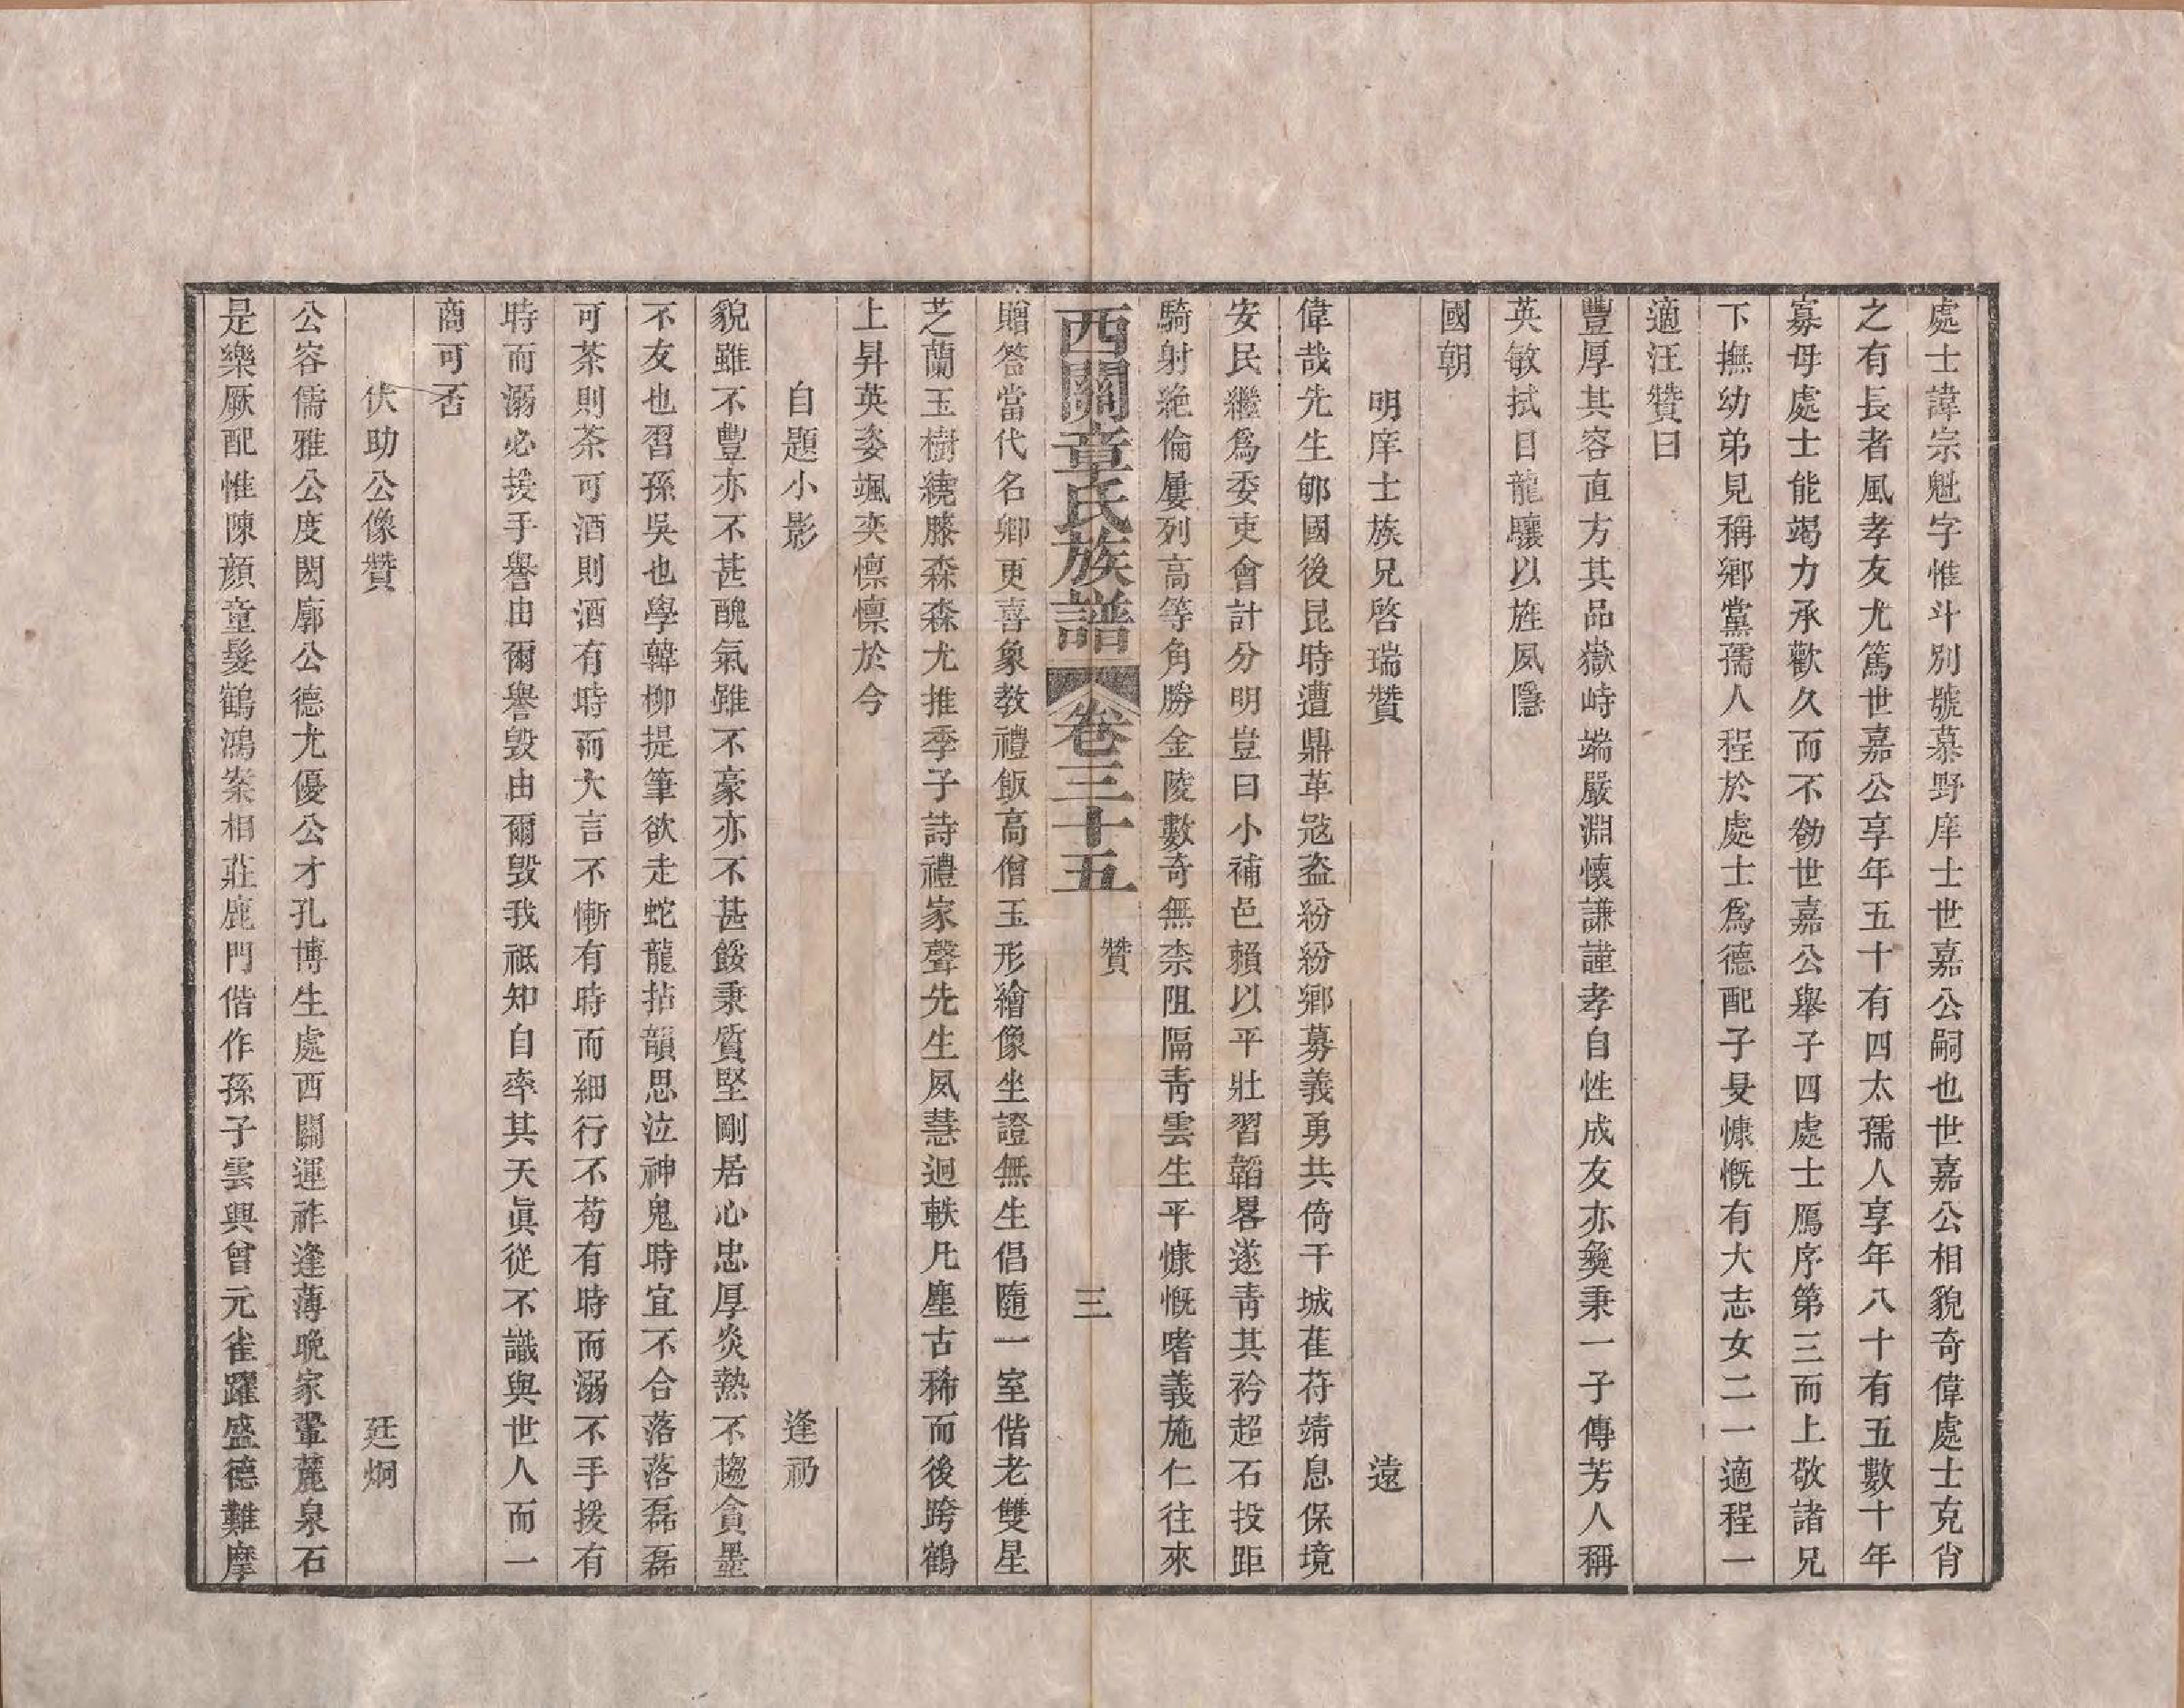 處士諱宗魁字惟斗別號慕野庠士世嘉公嗣也世嘉公相貌奇偉處士克肖
之有長者風孝友尤篤世嘉公享年五十有四太孺人享年八十有五數十年
寡母處士能竭力承歡久而不勌世嘉公舉子四處士鴈序第三而上敬諸兄
下撫幼弟見稱鄉黨孺人程於處士為德配子旻慷慨有大志女二一適程一
適汪贊曰
豐厚其容直方其品嶽峙端嚴淵懷謙謹孝自性成友亦彝秉一子傳芳人稱
英敏拭目龍驤以旌夙隱
國朝
明庠士族兄啓瑞贊 遠
偉哉先生郇國後昆時遭鼎革寇盜紛紛鄉募義勇共倚干城萑苻靖息保境
安民繼爲委吏會計分明豈曰小補邑賴以平壯習韜畧遂靑其衿超石投距
騎射絶倫屢列高等角勝金陵數奇無柰阻隔靑雲生平慷慨嗜義施仁往來
西關章氏族譜 卷三十五 贊 三
贈答當代名卿更喜象教禮飯高僧玉形繪像坐證無生倡隨一室偕老雙星
芝蘭玉樹繞膝森森尤推季子詩禮家聲先生夙慧迥軼凡塵古稀而後跨鶴
上昇英姿颯奕懍懍於今
自題小影 逢礽
貌雖不豐亦不甚醜氣雖不豪亦不甚餒秉質堅剛居心忠厚炎熱不趨貪墨
不友也習孫吳也學韓柳提筆欲走蛇龍拈韻思泣神鬼時宜不合落落磊磊
可茶則茶可酒則酒有時而大言不慚有時而細行不苟有時而溺不手援有
時而溺必援手譽由爾譽毀由爾毀我祇知自率其天眞從不識與世人而一
商可否
伏助公像贊 廷炯
公容儒雅公度閎廓公德尤優公才孔博生處西關運祚逢薄晚家鞏麓泉石
是樂厥配惟陳顏童髮鶴鴻案相莊鹿門偕作孫子雲興曾元雀躍盛德難摩